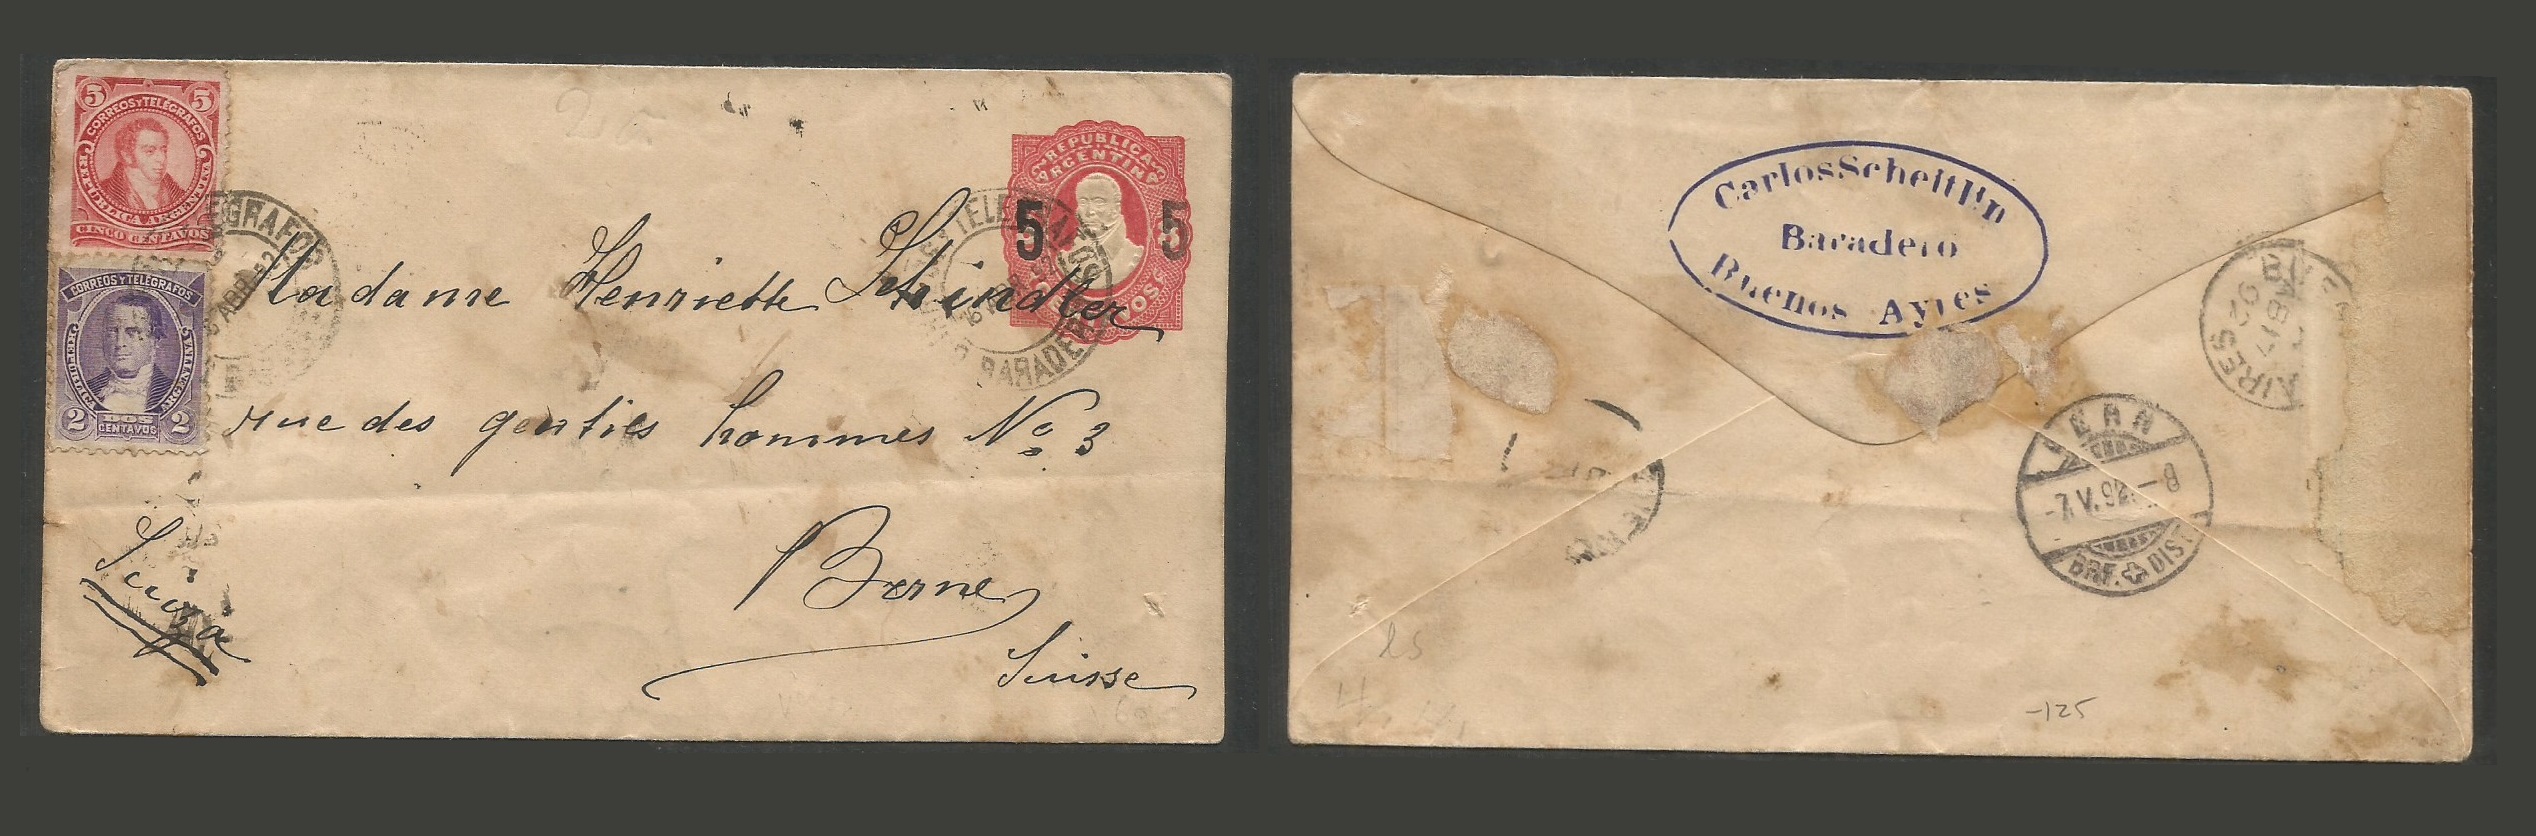 5 5
CORREOS Y TELÉGRAFOS
REPÚBLICA ARGENTINA
CINCO CENTAVOS
CORREOS Y TELÉGRAFOS
REPÚBLICA ARGENTINA
2 DOS 2
CENTAVOS
REPUBLICA
ARGENTINA
5 5
CENTAVOS
TELEGRAFOS
ABR 92
BARADERO
Madame Henriette Schindler
rue des gentils hommes No. 3
Berne
Suisse
Suiza
Carlos Scheitlin
Baradero
Buenos Ayres
BUENOS AIRES
AB 17
92
BERN
-7.V.92.-8
BRF. DIST.
-125